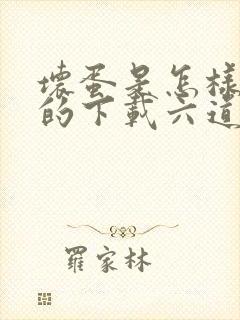 壞蛋是怎樣
的下載六道
羅家林